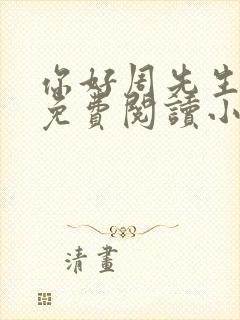 你好周先生
免費閱讀小
清畫